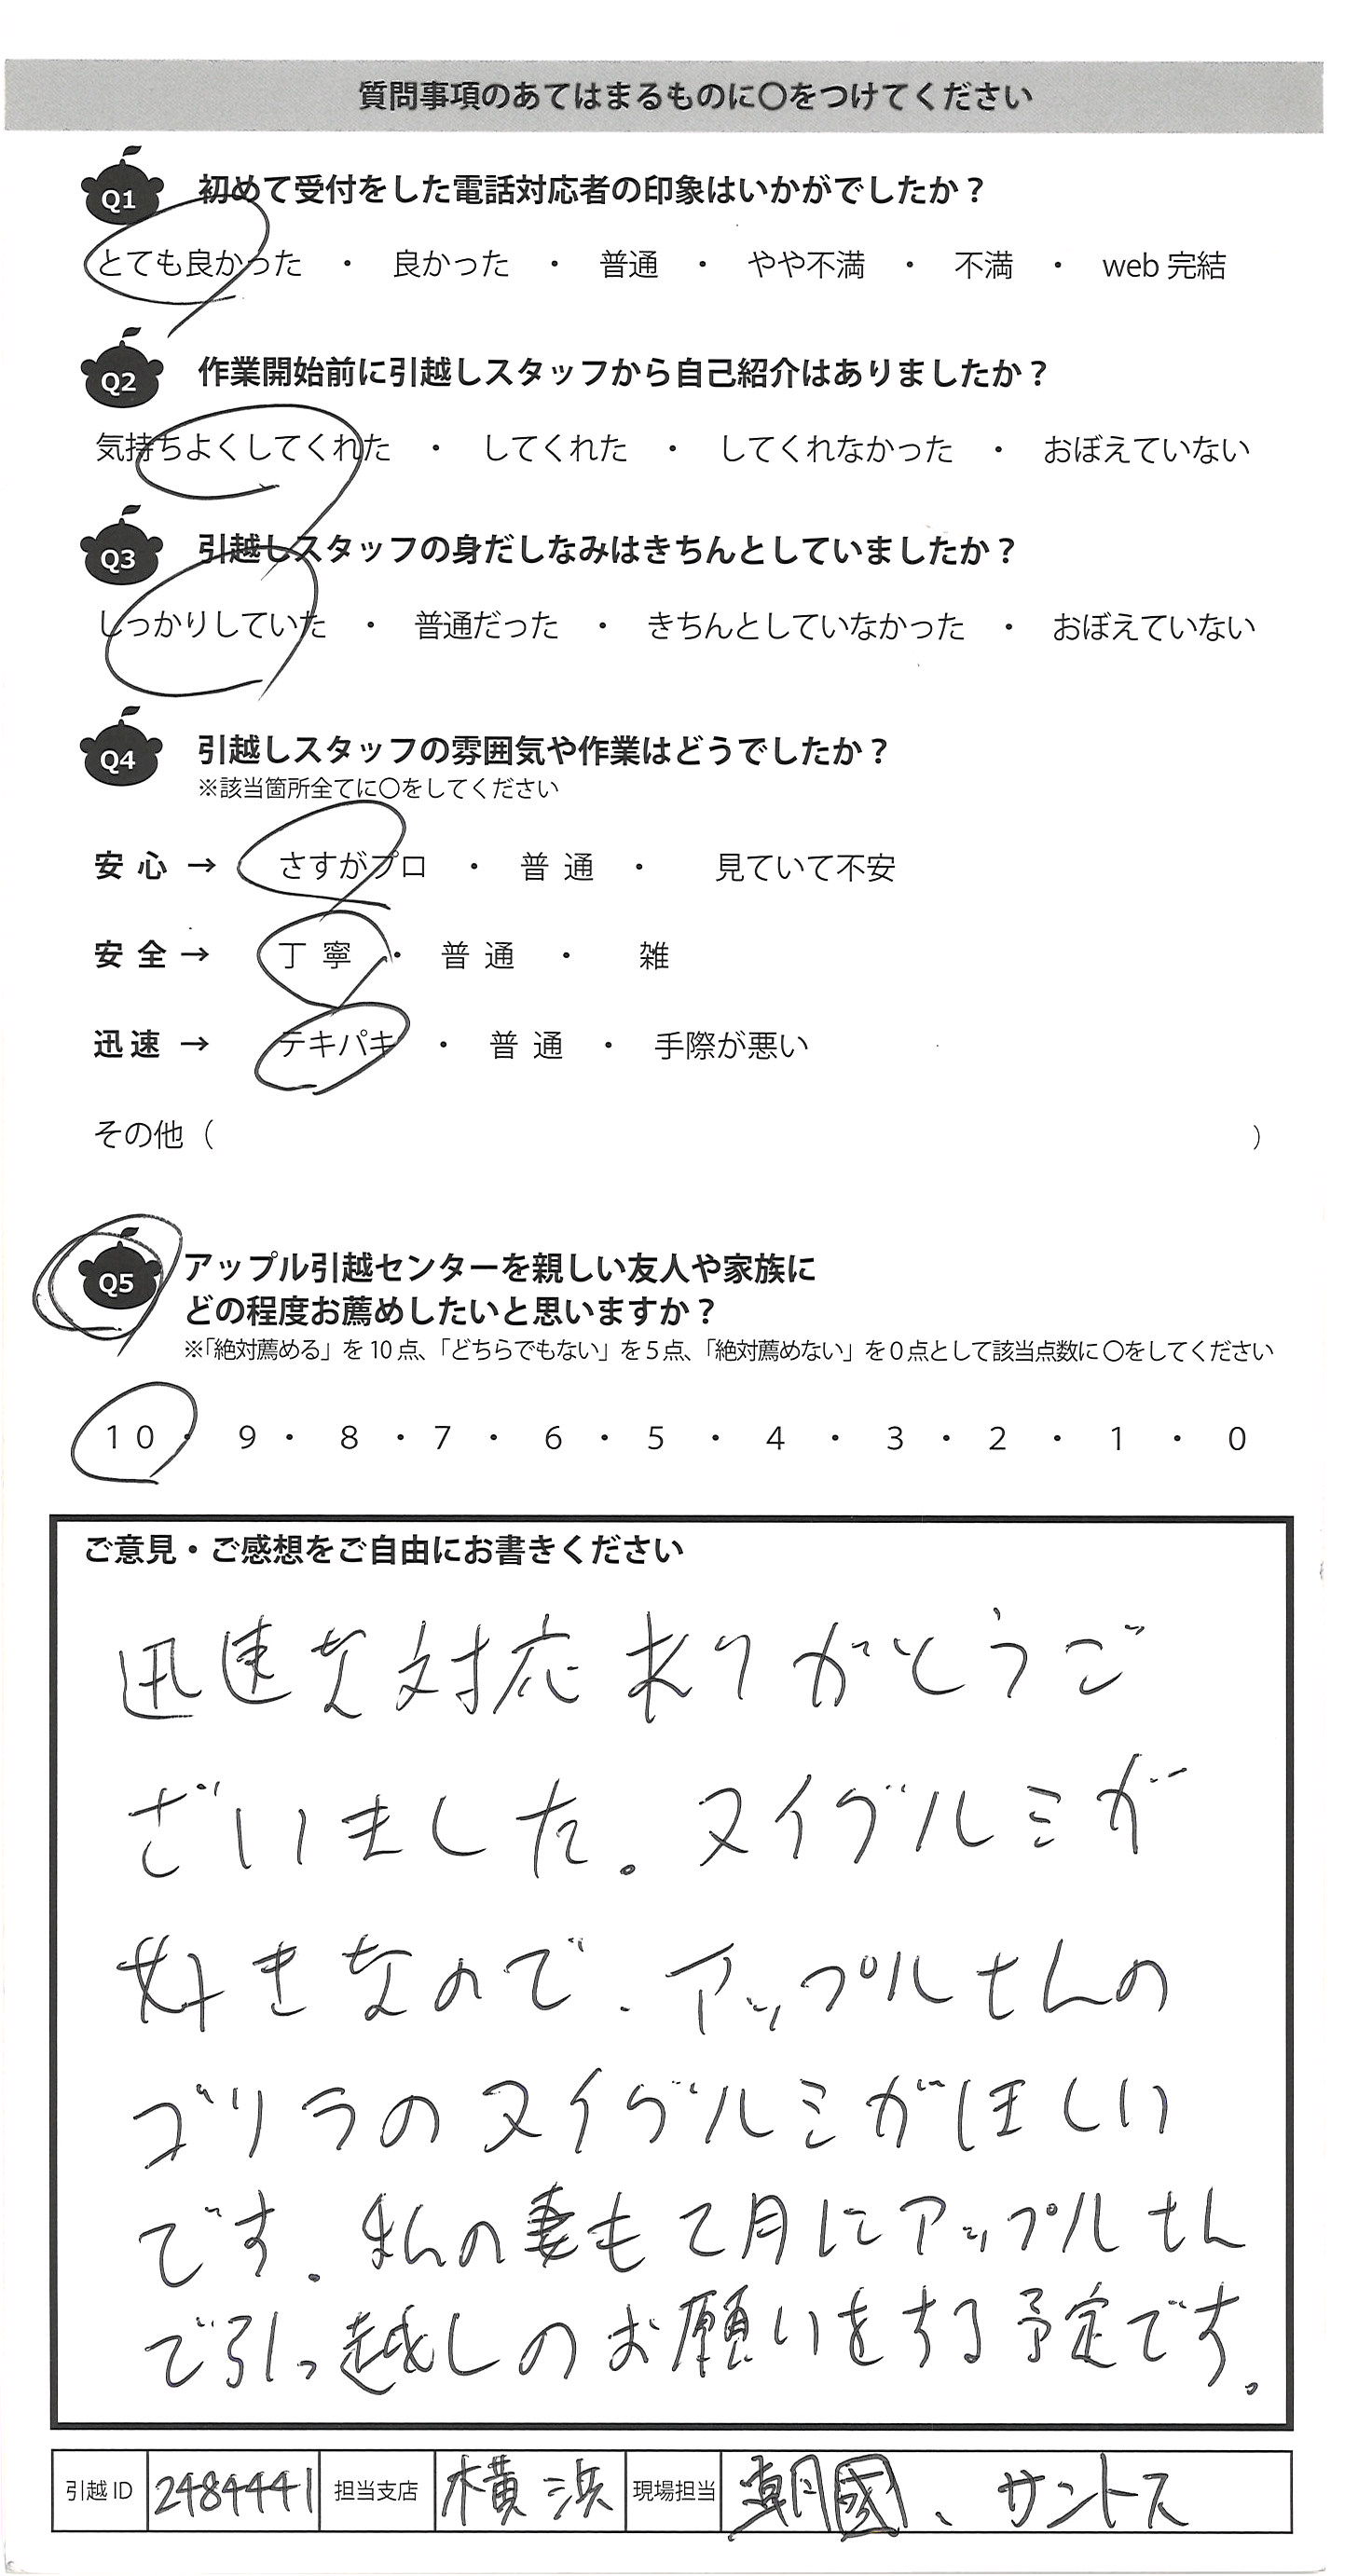 質問事項のあてはまるものに〇をつけてください
Q1 初めて受付をした電話対応者の印象はいかがでしたか？
とても良かった ・ 良かった ・ 普通 ・ やや不満 ・ 不満 ・ web 完結
Q2 作業開始前に引越しスタッフから自己紹介はありましたか？
気持ちよくしてくれた ・ してくれた ・ してくれなかった ・ おぼえていない
Q3 引越しスタッフの身だしなみはきちんとしていましたか？
しっかりしていた ・ 普通だった ・ きちんとしていなかった ・ おぼえていない
Q4 引越しスタッフの雰囲気や作業はどうでしたか？
※該当箇所全てに〇をしてください
安心 → さすがプロ ・ 普通 ・ 見ていて不安
安全 → 丁寧 ・ 普通 ・ 雑
迅速 → テキパキ ・ 普通 ・ 手際が悪い
その他（ ）
Q5 アップル引越センターを親しい友人や家族に
どの程度お薦めしたいと思いますか？
※「絶対薦める」を 10 点、「どちらでもない」を 5 点、「絶対薦めない」を 0 点として該当点数に〇をしてください
10 ・ 9 ・ 8 ・ 7 ・ 6 ・ 5 ・ 4 ・ 3 ・ 2 ・ 1 ・ 0
ご意見・ご感想をご自由にお書きください
迅速な対応ありがとうご
ざいました。ヌイグルミが
好きなので、アップルさんの
ゴリラのヌイグルミがほしい
です。私の妻も2月にアップルさん
で引っ越しのお願いをする予定です。
引越 ID 2484441 担当支店 横浜 現場担当 朝國、サントス